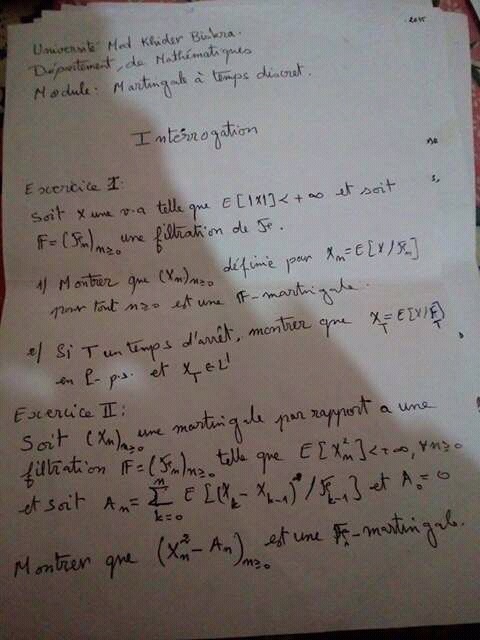 2015
Université Med Khider Biskra.
Département de Mathématiques
Module: Martingale à temps discret.
Interrogation
Exercice I:
Soit X une v.a telle que E[|X|] < +∞ et soit
F = (Fn)n≥0 une filtration de F.
1/ Montrer que (Xn)n≥0 définie par Xn = E[X/Fn]
pour tout n≥0 est une F-martingale.
2/ Si T un temps d'arrêt, montrer que XT = E[X/FT]
en P-p.s. et XT ∈ L¹
Exercice II:
Soit (Xn)n≥0 une martingale par rapport a une
filtration F = (Fn)n≥0 telle que E[Xn²] < +∞, ∀n≥0
et soit An = Σ(k=0 → n) E[(Xk - Xk-1)²/Fk-1] et A0 = 0
Montrer que (Xn² - An)n≥0 est une Fn-martingale.